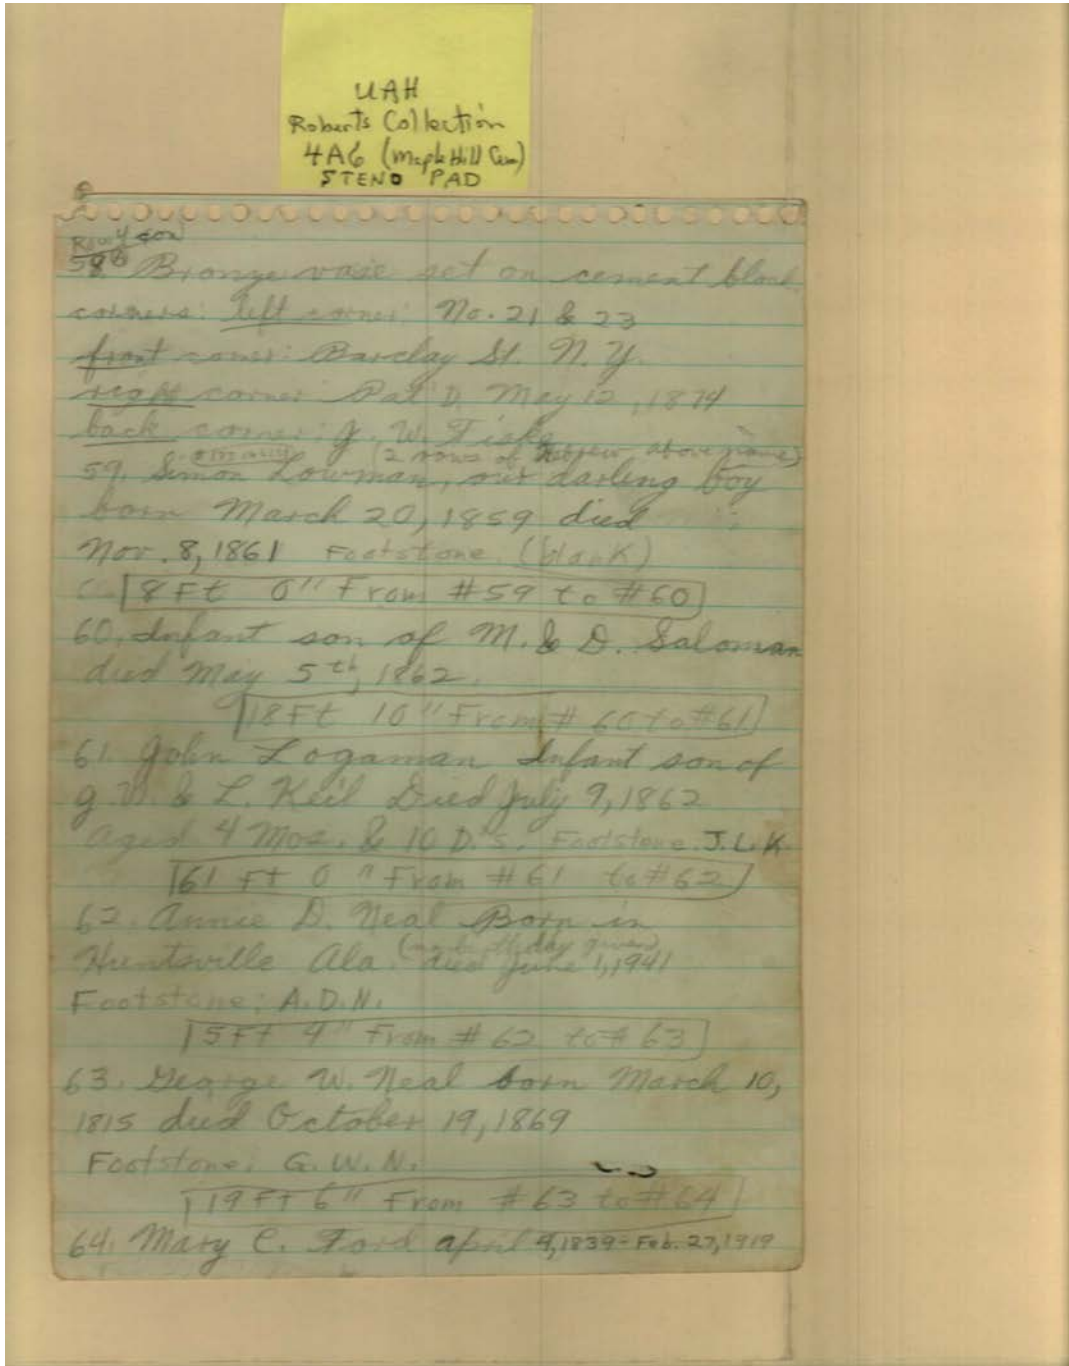 UAH
Roberts Collection
4A6 (Maple Hill Cem)
STENO PAD
Row 4 con
58 B Bronze vase set on cement block
corners: left corner: No. 21 & 23
front corner: Barclay St. N.Y.
right corner: Pat'D May 12, 1874
back corner: J. W. Fiske
(2 rows of Hebrew above name)
59. Simon Lowman, our darling boy
born March 20, 1859 died
Nov. 8, 1861 Footstone. (blank)
8 Ft 0" From #59 to #60
60. Infant son of M. & D. Saloman
died May 5th, 1862.
18 Ft 10" From # 60 to #61
61 John Logaman Infant son of
G. W. & L. Keil Died July 9, 1862
aged 4 Mos. & 10 D.'s. Footstone. J.L.K.
61 Ft 0" From #61 to #62
62. Annie D. Neal Born in
(no birthday given)
Huntsville Ala. died June 1, 1941
Footstone: A.D.N.
5 Ft 4" From #62 to # 63
63. George W. Neal born March 10,
1815 died October 19, 1869
Footstone: G. W. N.
19 Ft 6" From #63 to #64
64. Mary C. Ford April 9, 1839 - Feb. 27, 1919